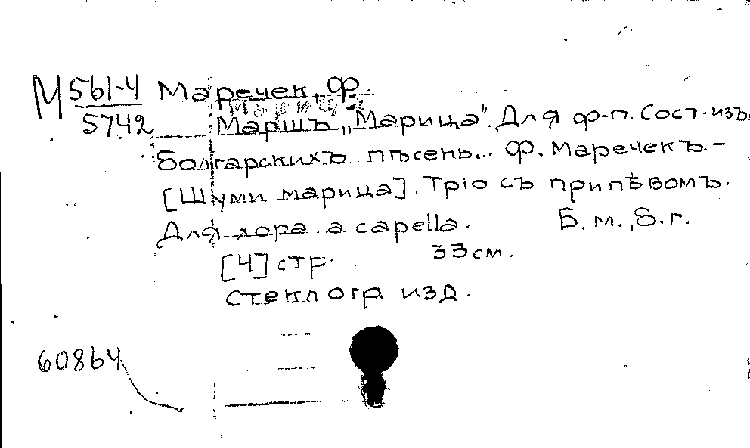 М 561-4 Маречек, Ф.
5742 Маршъ „Марица". Для ф-п. Сост. изъ
болгарскихъ пѣсень... Ф. Маречекъ. -
[Шуми марица]. Тріо съ припѣвомъ.
Для хора a capella. Б. м., б. г.
[4] стр. 33 см.
Стеклогр. изд.
60864